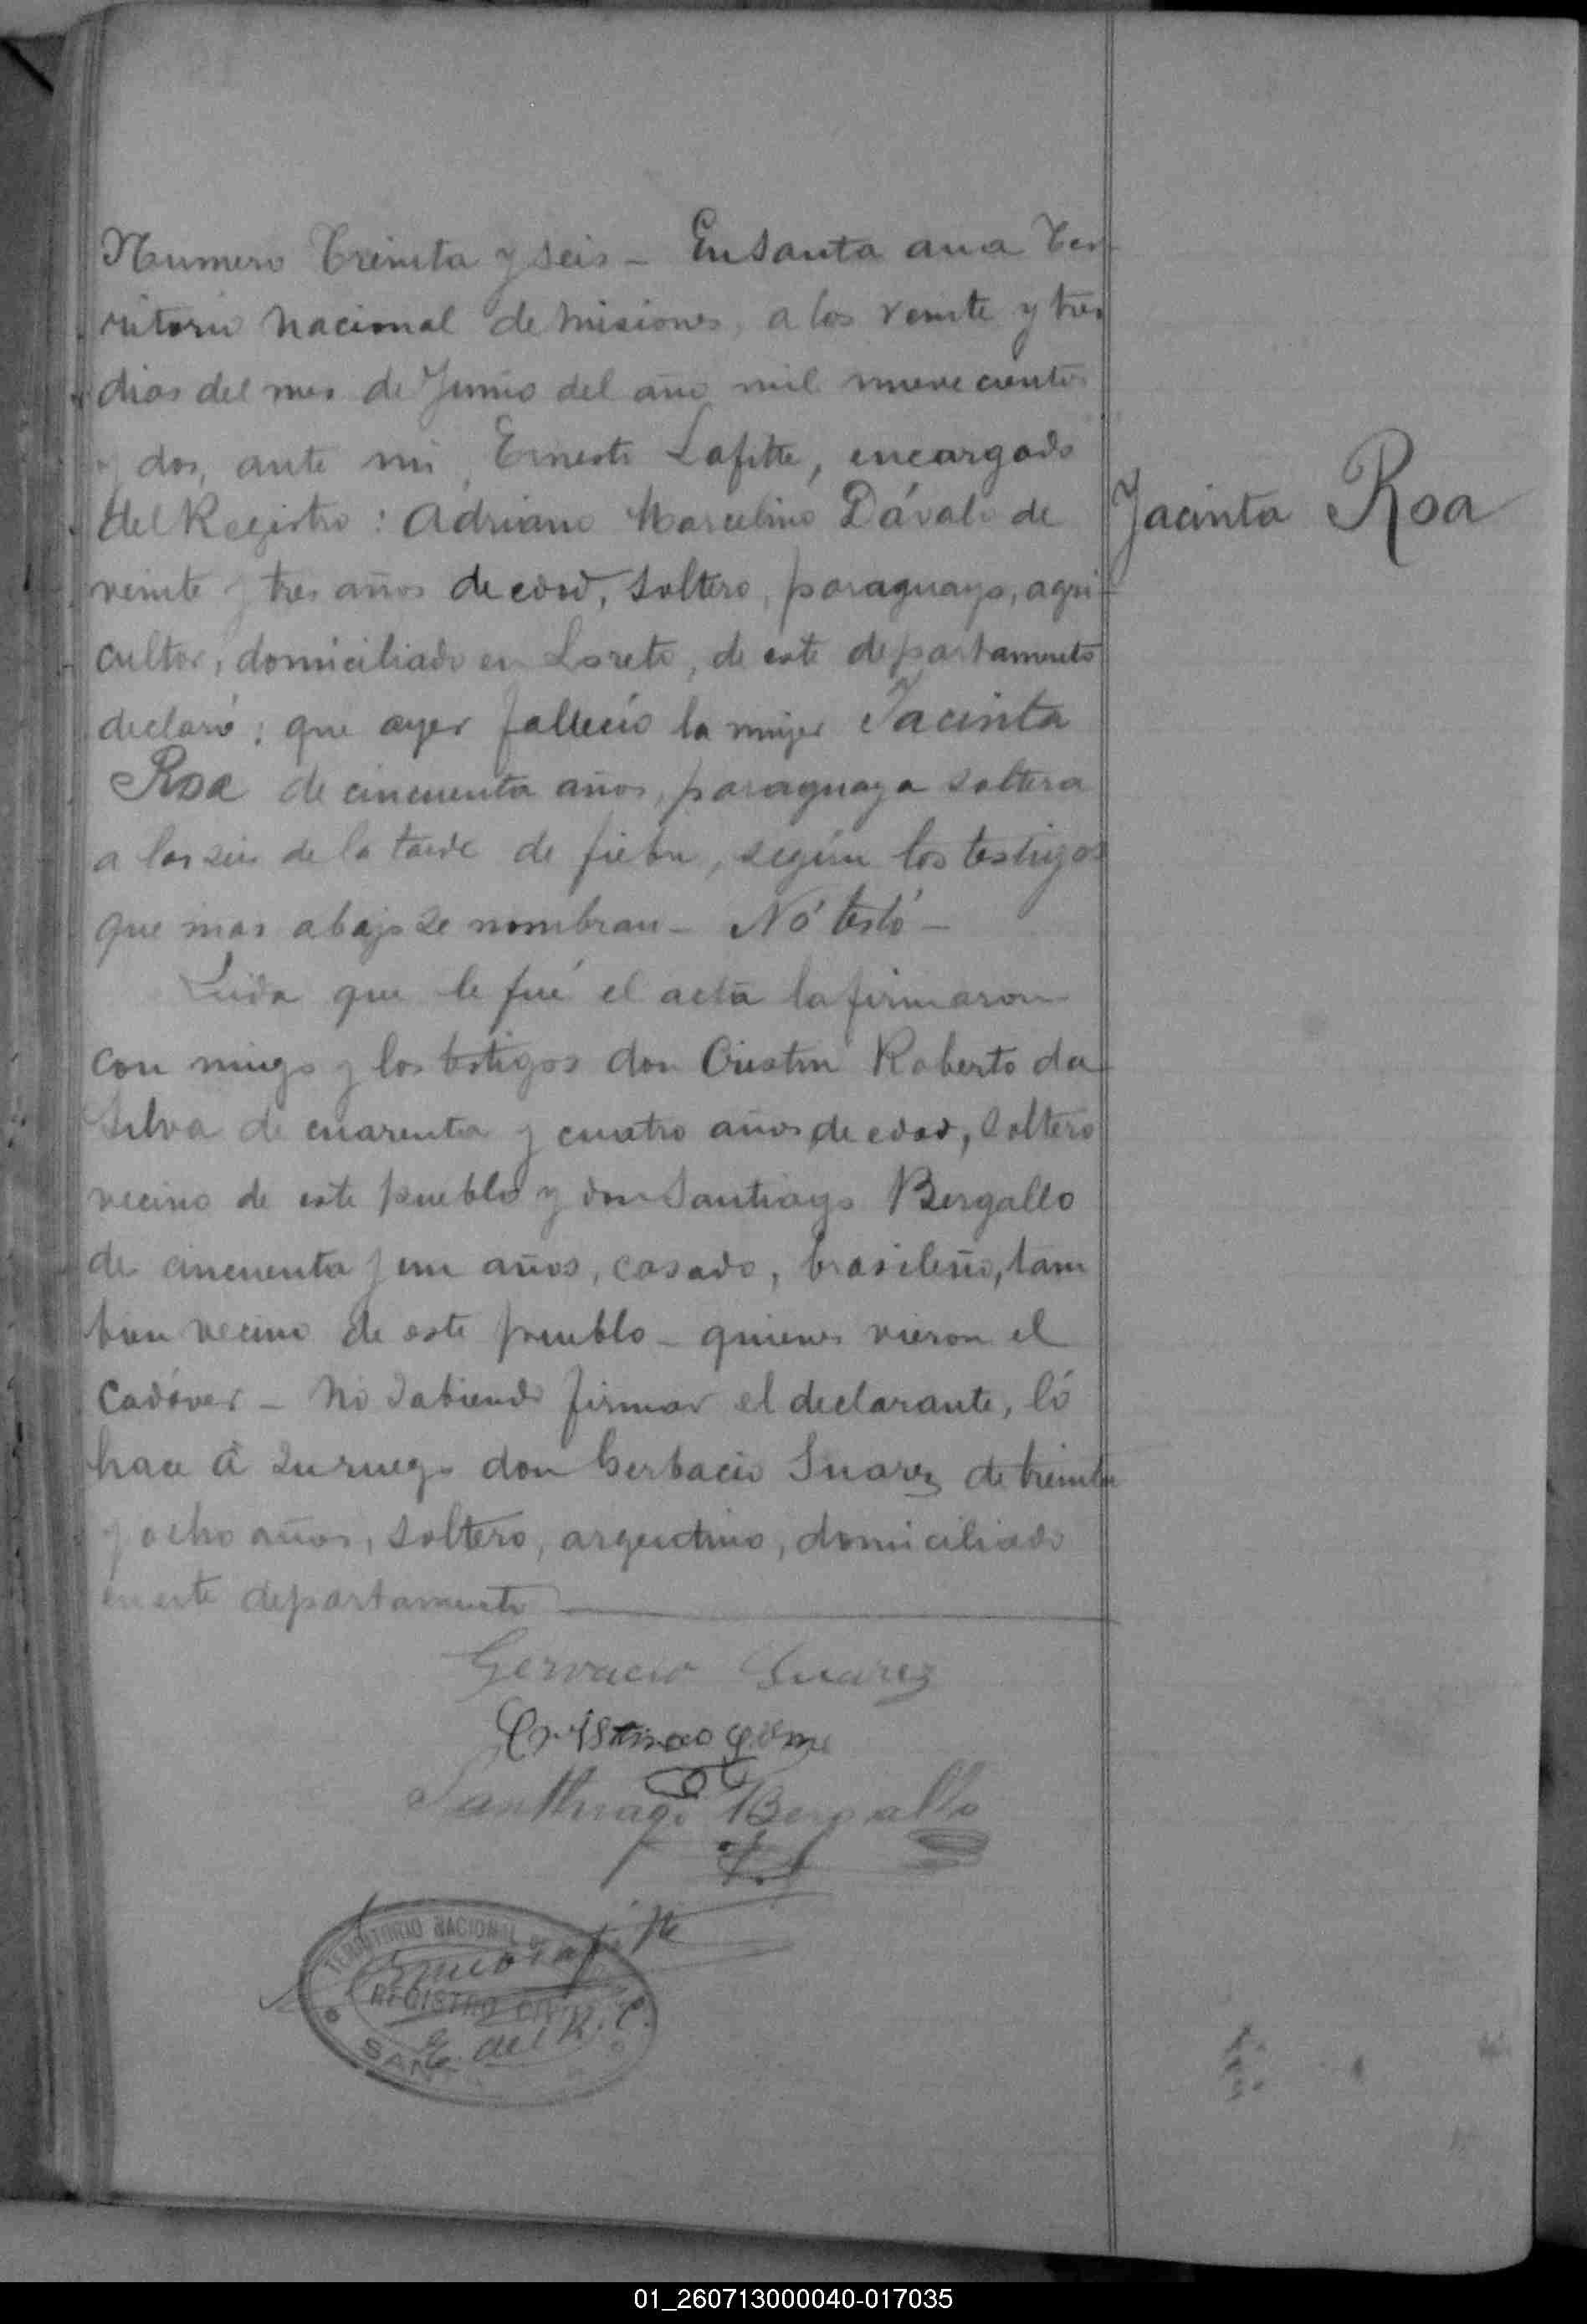 Numero Treinta y seis - En Santa ana Ter-
ritorio Nacional de Misiones, a los veinte y tres
dias del mes de Junio del año mil nueve cientos
y dos, ante mi, Ernesto Lafitte, encargado
del Registro: Adriano Marcelino Dávalo de
Jacinta Roa
veinte y tres años de edad, soltero, paraguayo, agri-
cultor, domiciliado en Loreto, de este departamento
declaró: que ayer fallecio la mujer Jacinta
Roa de cincuenta años, paraguaya soltera
a las seis de la tarde de fiebre, según los testigos
que mas abajo se nombran - Nó testó -
Leida que le fué el acta la firmaron
con migo y los testigos don Roberto da
Silva de cuarenta y cuatro años de edad, soltero
vecino de este pueblo y don Santiago Bergallo
de cincuenta y un años, casado, brasileño, tam
bien vecino de este pueblo - quienes vieron el
cadáver - No sabiendo firmar el declarante, ló
hace á su ruego don Gerbacio Suarez de treinta
y ocho años, soltero, argentino, domiciliado
en este departamento
Gervacio Suarez
Santhiago Bergallo
TERRITORIO NACIONAL
REGISTRO CIVIL
E. del R. C.
SAN
01_260713000040-017035